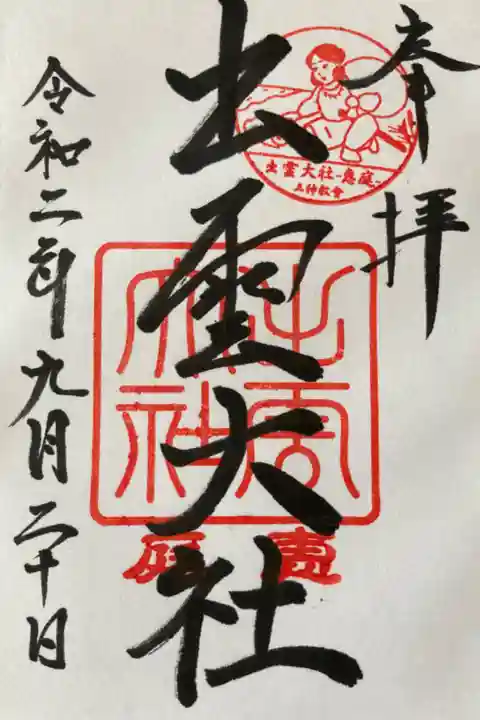 奉拝
出雲大社-恵庭-
三神教會
出雲大社
出雲大社
恵庭
令和二年九月二十日